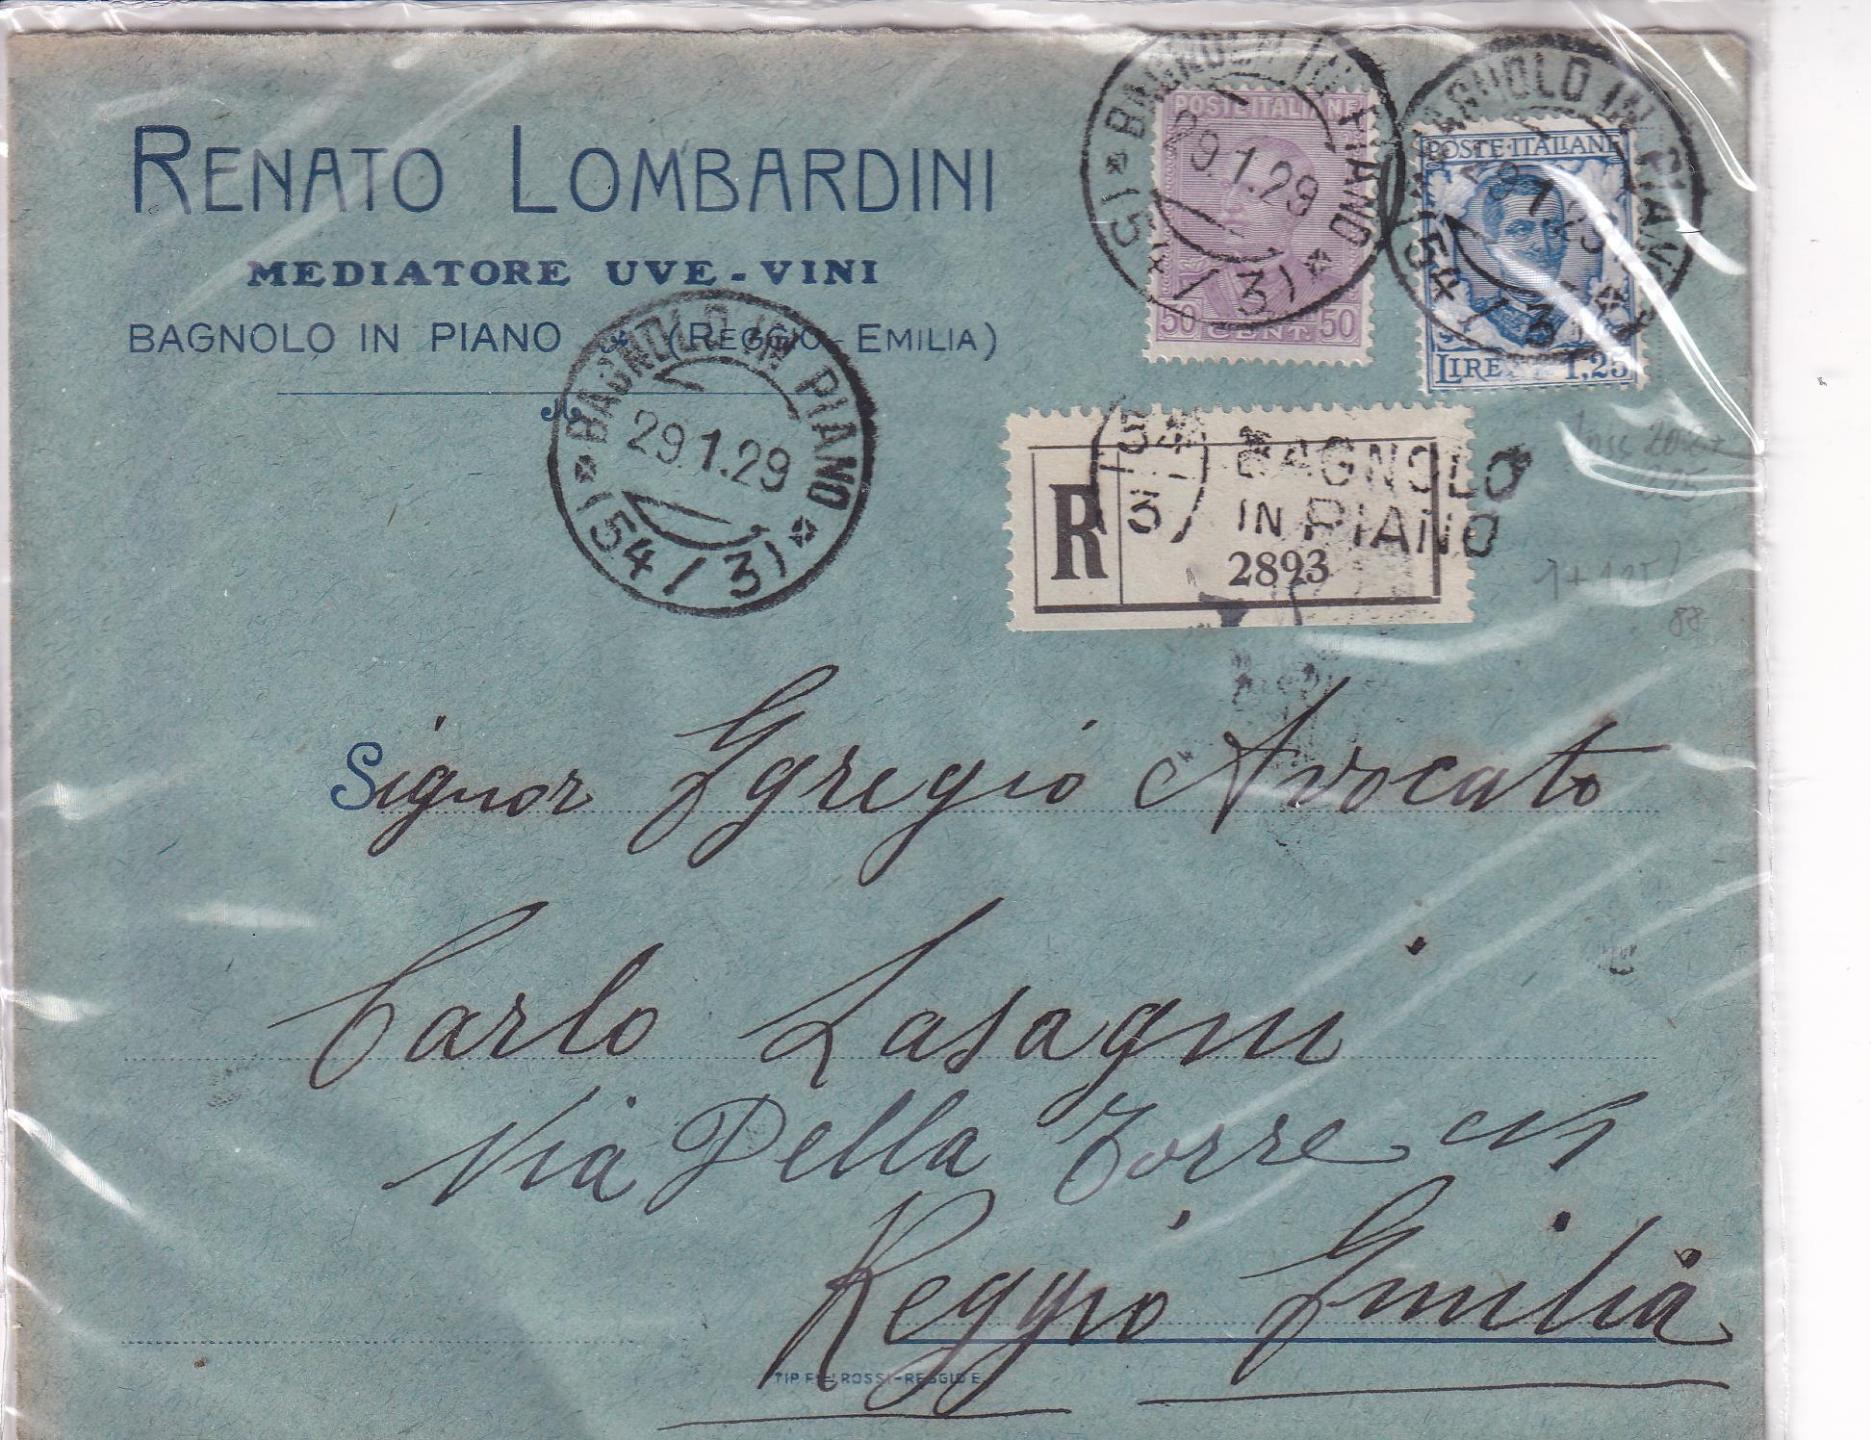 RENATO LOMBARDINI
MEDIATORE UVE-VINI
BAGNOLO IN PIANO (REGGIO-EMILIA)
BAGNOLO IN PIANO
29.1.29
(54/3)
BAGNOLO IN PIANO
29.1.29
(54/3)
BAGNOLO IN PIANO
29.1.29
(54/3)
POSTE ITALIANE
50 CENT. 50
POSTE·ITALIANE
LIRE 1,25
R
54
3
BAGNOLO
IN PIANO
2893
88
Signor Egregio Avocato
Carlo Lasagni
Via Della Torre
Reggio Emilia
TIP. F ROSSI-REGGIO E.